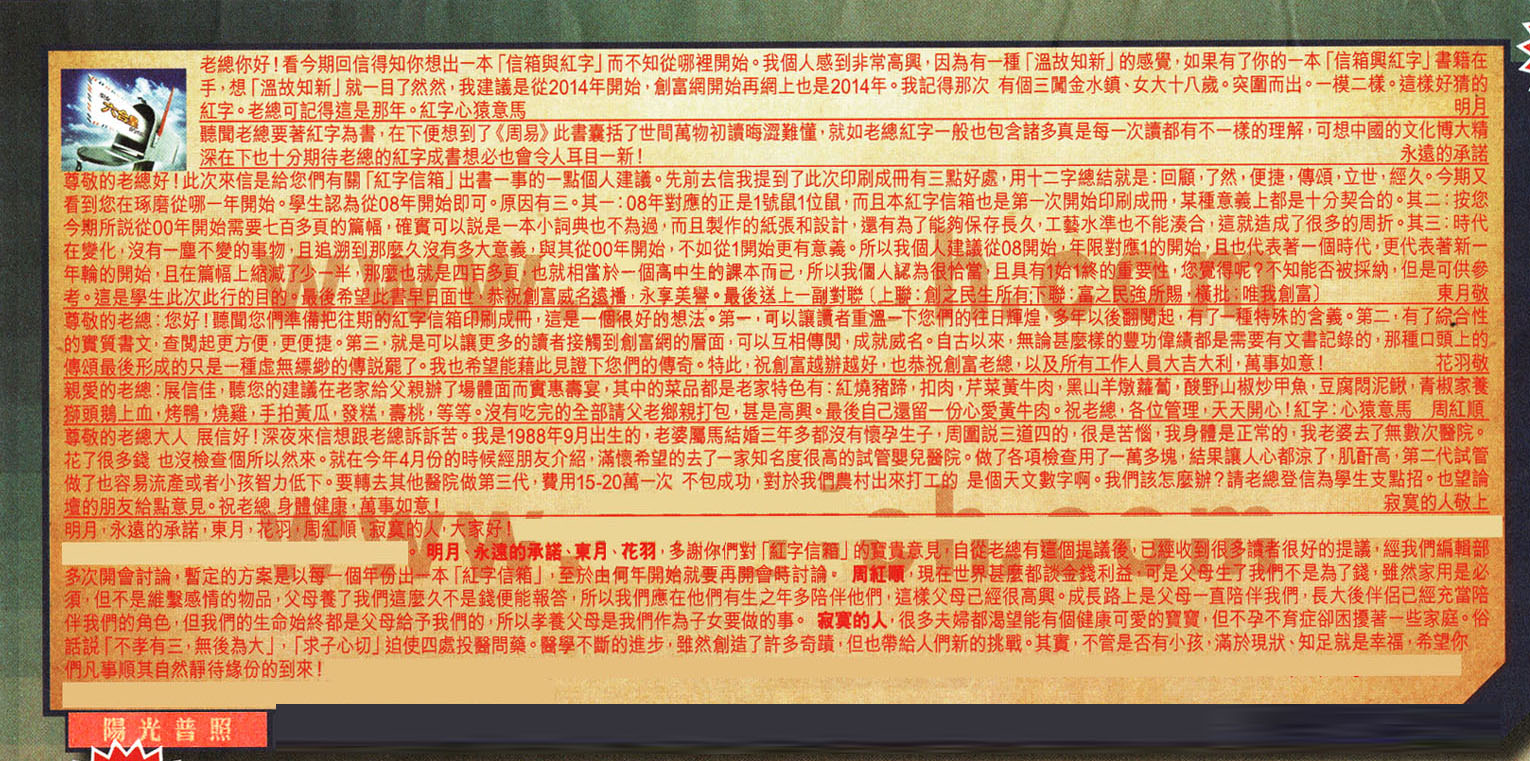 老總你好！看今期回信得知你想出一本「信箱與紅字」而不知從哪裡開始。我個人感到非常高興，因為有一種「溫故知新」的感覺，如果有了你的一本「信箱興紅字」書籍在
手，想「溫故知新」就一目了然然，我建議是從2014年開始，創富網開始再網上也是2014年。我記得那次 有個三闖金水鎮、女大十八歲。突圍而出。一模二樣。這樣好猜的
紅字。老總可記得這是那年。紅字心猿意馬 明月
聽聞老總要著紅字為書，在下便想到了《周易》此書囊括了世間萬物初讀晦澀難懂，就如老總紅字一般也包含諸多真是每一次讀都有不一樣的理解，可想中國的文化博大精
深在下也十分期待老總的紅字成書想必也會令人耳目一新！ 永遠的承諾
尊敬的老總好！此次來信是給您們有關「紅字信箱」出書一事的一點個人建議。先前去信我提到了此次印刷成冊有三點好處，用十二字總結就是：回顧，了然，便捷，傳頌，立世，經久。今期又
看到您在琢磨從哪一年開始。學生認為從08年開始即可。原因有三。其一：08年對應的正是1號鼠1位鼠，而且本紅字信箱也是第一次開始印刷成冊，某種意義上都是十分契合的。其二：按您
今期所說從00年開始需要七百多頁的篇幅，確實可以說是一本小詞典也不為過，而且製作的紙張和設計，還有為了能夠保存長久，工藝水準也不能湊合，這就造成了很多的周折。其三：時代
在變化，沒有一塵不變的事物，且追溯到那麼久沒有多大意義，與其從00年開始，不如從1開始更有意義。所以我個人建議從08開始，年限對應1的開始，且也代表著一個時代，更代表著新一
年輪的開始，且在篇幅上縮減了少一半，那麼也就是四百多頁，也就相當於一個高中生的課本而己，所以我個人認為很恰當，且具有1始1終的重要性，您覺得呢？不知能否被採納，但是可供參
考。這是學生此次此行的目的。最後希望此書早日面世，恭祝創富威名遠播，永享美譽。最後送上一副對聯〔上聯：創之民生所有；下聯：富之民強所賜，橫批：唯我創富〕 東月敬
尊敬的老總：您好！聽聞您們準備把往期的紅字信箱印刷成冊，這是一個很好的想法。第一，可以讓讀者重溫一下您們的往日輝煌，多年以後翻閱起，有了一種特殊的含義。第二，有了綜合性
的實質書文，查閱起更方便，更便捷。第三，就是可以讓更多的讀者接觸到創富網的層面，可以互相傳閱，成就威名。自古以來，無論甚麼樣的豐功偉績都是需要有文書記錄的，那種口頭上的
傳頌最後形成的只是一種虛無縹緲的傳說罷了。我也希望能藉此見證下您們的傳奇。特此，祝創富越辦越好，也恭祝創富老總，以及所有工作人員大吉大利，萬事如意！ 花羽敬
親愛的老總：展信佳，聽您的建議在老家給父親辦了場體面而實惠壽宴，其中的菜品都是老家特色有：紅燒豬蹄，扣肉，芹菜黃牛肉，黑山羊燉蘿蔔，酸野山椒炒甲魚，豆腐悶泥鰍，青椒家養
獅頭鵝上血，烤鴨，燒雞，手拍黃瓜，發糕，壽桃，等等。沒有吃完的全部請父老鄉親打包，甚是高興。最後自己還留一份心愛黃牛肉。祝老總，各位管理，天天開心！紅字：心猿意馬 周紅順
尊敬的老總大人 展信好！深夜來信想跟老總訴訴苦。我是1988年9月出生的，老婆屬馬結婚三年多都沒有懷孕生子，周圍說三道四的，很是苦惱，我身體是正常的，我老婆去了無數次醫院。
花了很多錢 也沒檢查個所以然來。就在今年4月份的時候經朋友介紹，滿懷希望的去了一家知名度很高的試管嬰兒醫院。做了各項檢查用了一萬多塊，結果讓人心都涼了，肌酐高，第二代試管
做了也容易流產或者小孩智力低下。要轉去其他醫院做第三代，費用15-20萬一次 不包成功，對於我們農村出來打工的 是個天文數字啊。我們該怎麼辦？請老總登信為學生支點招。也望論
壇的朋友給點意見。祝老總 身體健康，萬事如意！ 寂寞的人敬上
明月，永遠的承諾，東月，花羽，周紅順，寂寞的人，大家好！
。明月、永遠的承諾、東月、花羽，多謝你們對「紅字信箱」的寶貴意見，自從老總有這個提議後，已經收到很多讀者很好的提議，經我們編輯部
多次開會討論，暫定的方案是以每一個年份出一本「紅字信箱」，至於由何年開始就要再開會時討論。 周紅順，現在世界甚麼都談金錢利益，可是父母生了我們不是為了錢，雖然家用是必
須，但不是維繫感情的物品，父母養了我們這麼久不是錢便能報答，所以我們應在他們有生之年多陪伴他們，這樣父母已經很高興。成長路上是父母一直陪伴我們，長大後伴侶已經充當陪
伴我們的角色，但我們的生命始終都是父母給予我們的，所以孝養父母是我們作為子女要做的事。 寂寞的人，很多夫婦都渴望能有個健康可愛的寶寶，但不孕不育症卻困擾著一些家庭。俗
話說「不孝有三，無後為大」，「求子心切」迫使四處投醫問藥。醫學不斷的進步，雖然創造了許多奇蹟，但也帶給人們新的挑戰。其實，不管是否有小孩，滿於現狀、知足就是幸福，希望你
們凡事順其自然靜待緣份的到來！
陽光普照